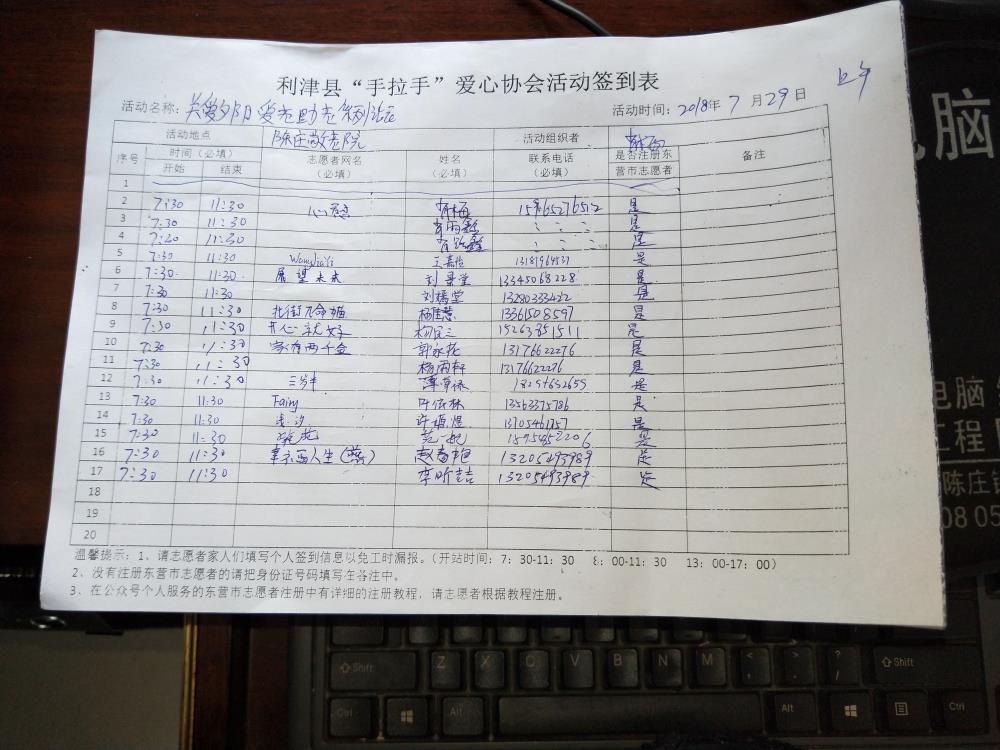 上午
利津县“手拉手”爱心协会活动签到表
活动名称: 关爱夕阳 爱老助老 活动时间: 2018年 7 月 29 日
活动地点 陈庄敬老院 活动组织者
序号 时间（必填） 志愿者网名（必填） 姓名（必填） 联系电话（必填） 是否注册东营市志愿者 备注
开始 结束
1
2 7:30 11:30 心愿 15965276512 是
3 7:30 11:30 : : : 是
4 7:30 11:30 : : : 是
5 7:30 11:30 WangJiaYi 王嘉怡 是
6 7:30 11:30 展望未来 刘景堂 13345068228 是
7 7:30 11:30 刘桥堂 13280333422 是
8 7:30 11:30 北街九命猫 杨佳慧 13361508597 是
9 7:30 11:30 开心就好 15263851511 是
10 7:30 11:30 家有两千金 郭家花 13176622276 是
11 7:30 11:30 杨雨轩 13176622276 是
12 7:30 11:30 三岁半 是
13 7:30 11:30 Fairy 叶依林 13563375786 是
14 7:30 11:30 许 13705461757 是
15 7:30 11:30 范一妃 是
16 7:30 11:30 人生（燕） 赵春艳 13205493989 是
17 7:30 11:30 李昕喆 13205493989 是
18
19
20
温馨提示: 1、请志愿者家人们填写个人签到信息以免工时漏报。（开站时间: 7: 30-11: 30 8: 00-11: 30 13: 00-17: 00）
2、没有注册东营市志愿者的请把身份证号码填写在备注中。
3、在公众号个人服务的东营市志愿者注册中有详细的注册教程, 请志愿者根据教程注册。
电脑
电脑
工程
陈庄镇
08 05
Shift Z X C V B N M < , > . ? / Shift
Ctrl Alt Alt Ctrl